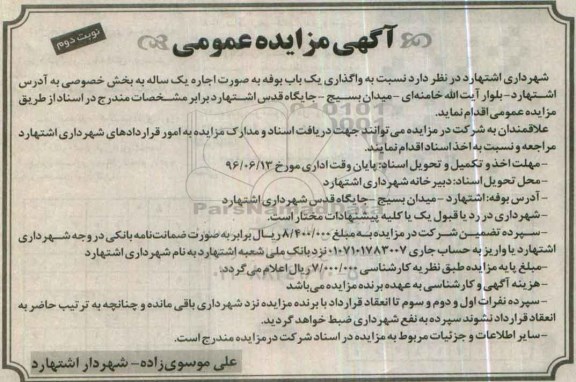 آگهی مزایده عمومی
نوبت دوم
شهرداری اشتهارد در نظر دارد نسبت به واگذاری یک باب بوفه به صورت اجاره یک ساله به بخش خصوصی به آدرس
اشتهارد - بلوار آیت الله خامنه‌ای - میدان بسیج - جایگاه قدس اشتهارد برابر مشخصات مندرج در اسناد از طریق
مزایده عمومی اقدام نماید.
علاقمندان به شرکت در مزایده می توانند جهت دریافت اسناد و مدارک مزایده به امور قراردادهای شهرداری اشتهارد
مراجعه و نسبت به اخذ اسناد اقدام نمایند.
- مهلت اخذ و تکمیل و تحویل اسناد: پایان وقت اداری مورخ ۹۶/۰۶/۱۳
- محل تحویل اسناد: دبیرخانه شهرداری اشتهارد
- آدرس بوفه: اشتهارد - میدان بسیج - جایگاه قدس شهرداری اشتهارد
- شهرداری در رد یا قبول یک یا کلیه پیشنهادات مختار است.
- سپرده تضمین شرکت در مزایده به مبلغ ۸/۴۰۰/۰۰۰ ریال برابر به صورت ضمانت‌نامه بانکی در وجه شهرداری
اشتهارد یا واریز به حساب جاری ۰۱۰۷۱۰۱۷۸۳۰۰۷ نزد بانک ملی شعبه اشتهارد به نام شهرداری اشتهارد
- مبلغ پایه مزایده طبق نظریه کارشناسی ۷/۰۰۰/۰۰۰ ریال اعلام می گردد.
- هزینه آگهی و کارشناسی به عهده برنده مزایده می‌باشد
- سپرده نفرات اول و دوم و سوم تا انعقاد قرارداد با برنده مزایده نزد شهرداری باقی مانده و چنانچه به ترتیب حاضر به
انعقاد قرارداد نشوند سپرده به نفع شهرداری ضبط خواهد گردید.
- سایر اطلاعات و جزئیات مربوط به مزایده در اسناد شرکت در مزایده مندرج است.
علی موسوی زاده - شهردار اشتهارد